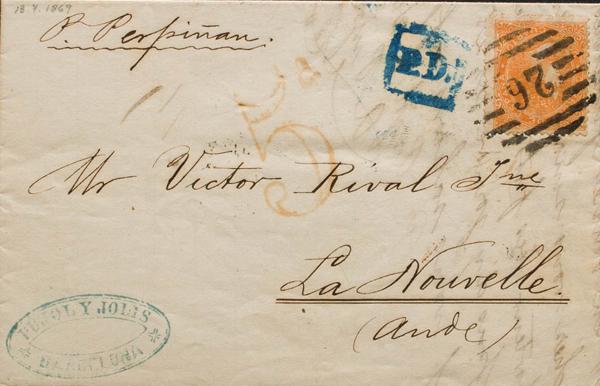 13.4.1867
P. Perpiñan.
P.D.
26
5
Mr Victor Rival Jne
La Nouvelle.
(Aude)
PUJOL Y JOLIS
BARCELONA